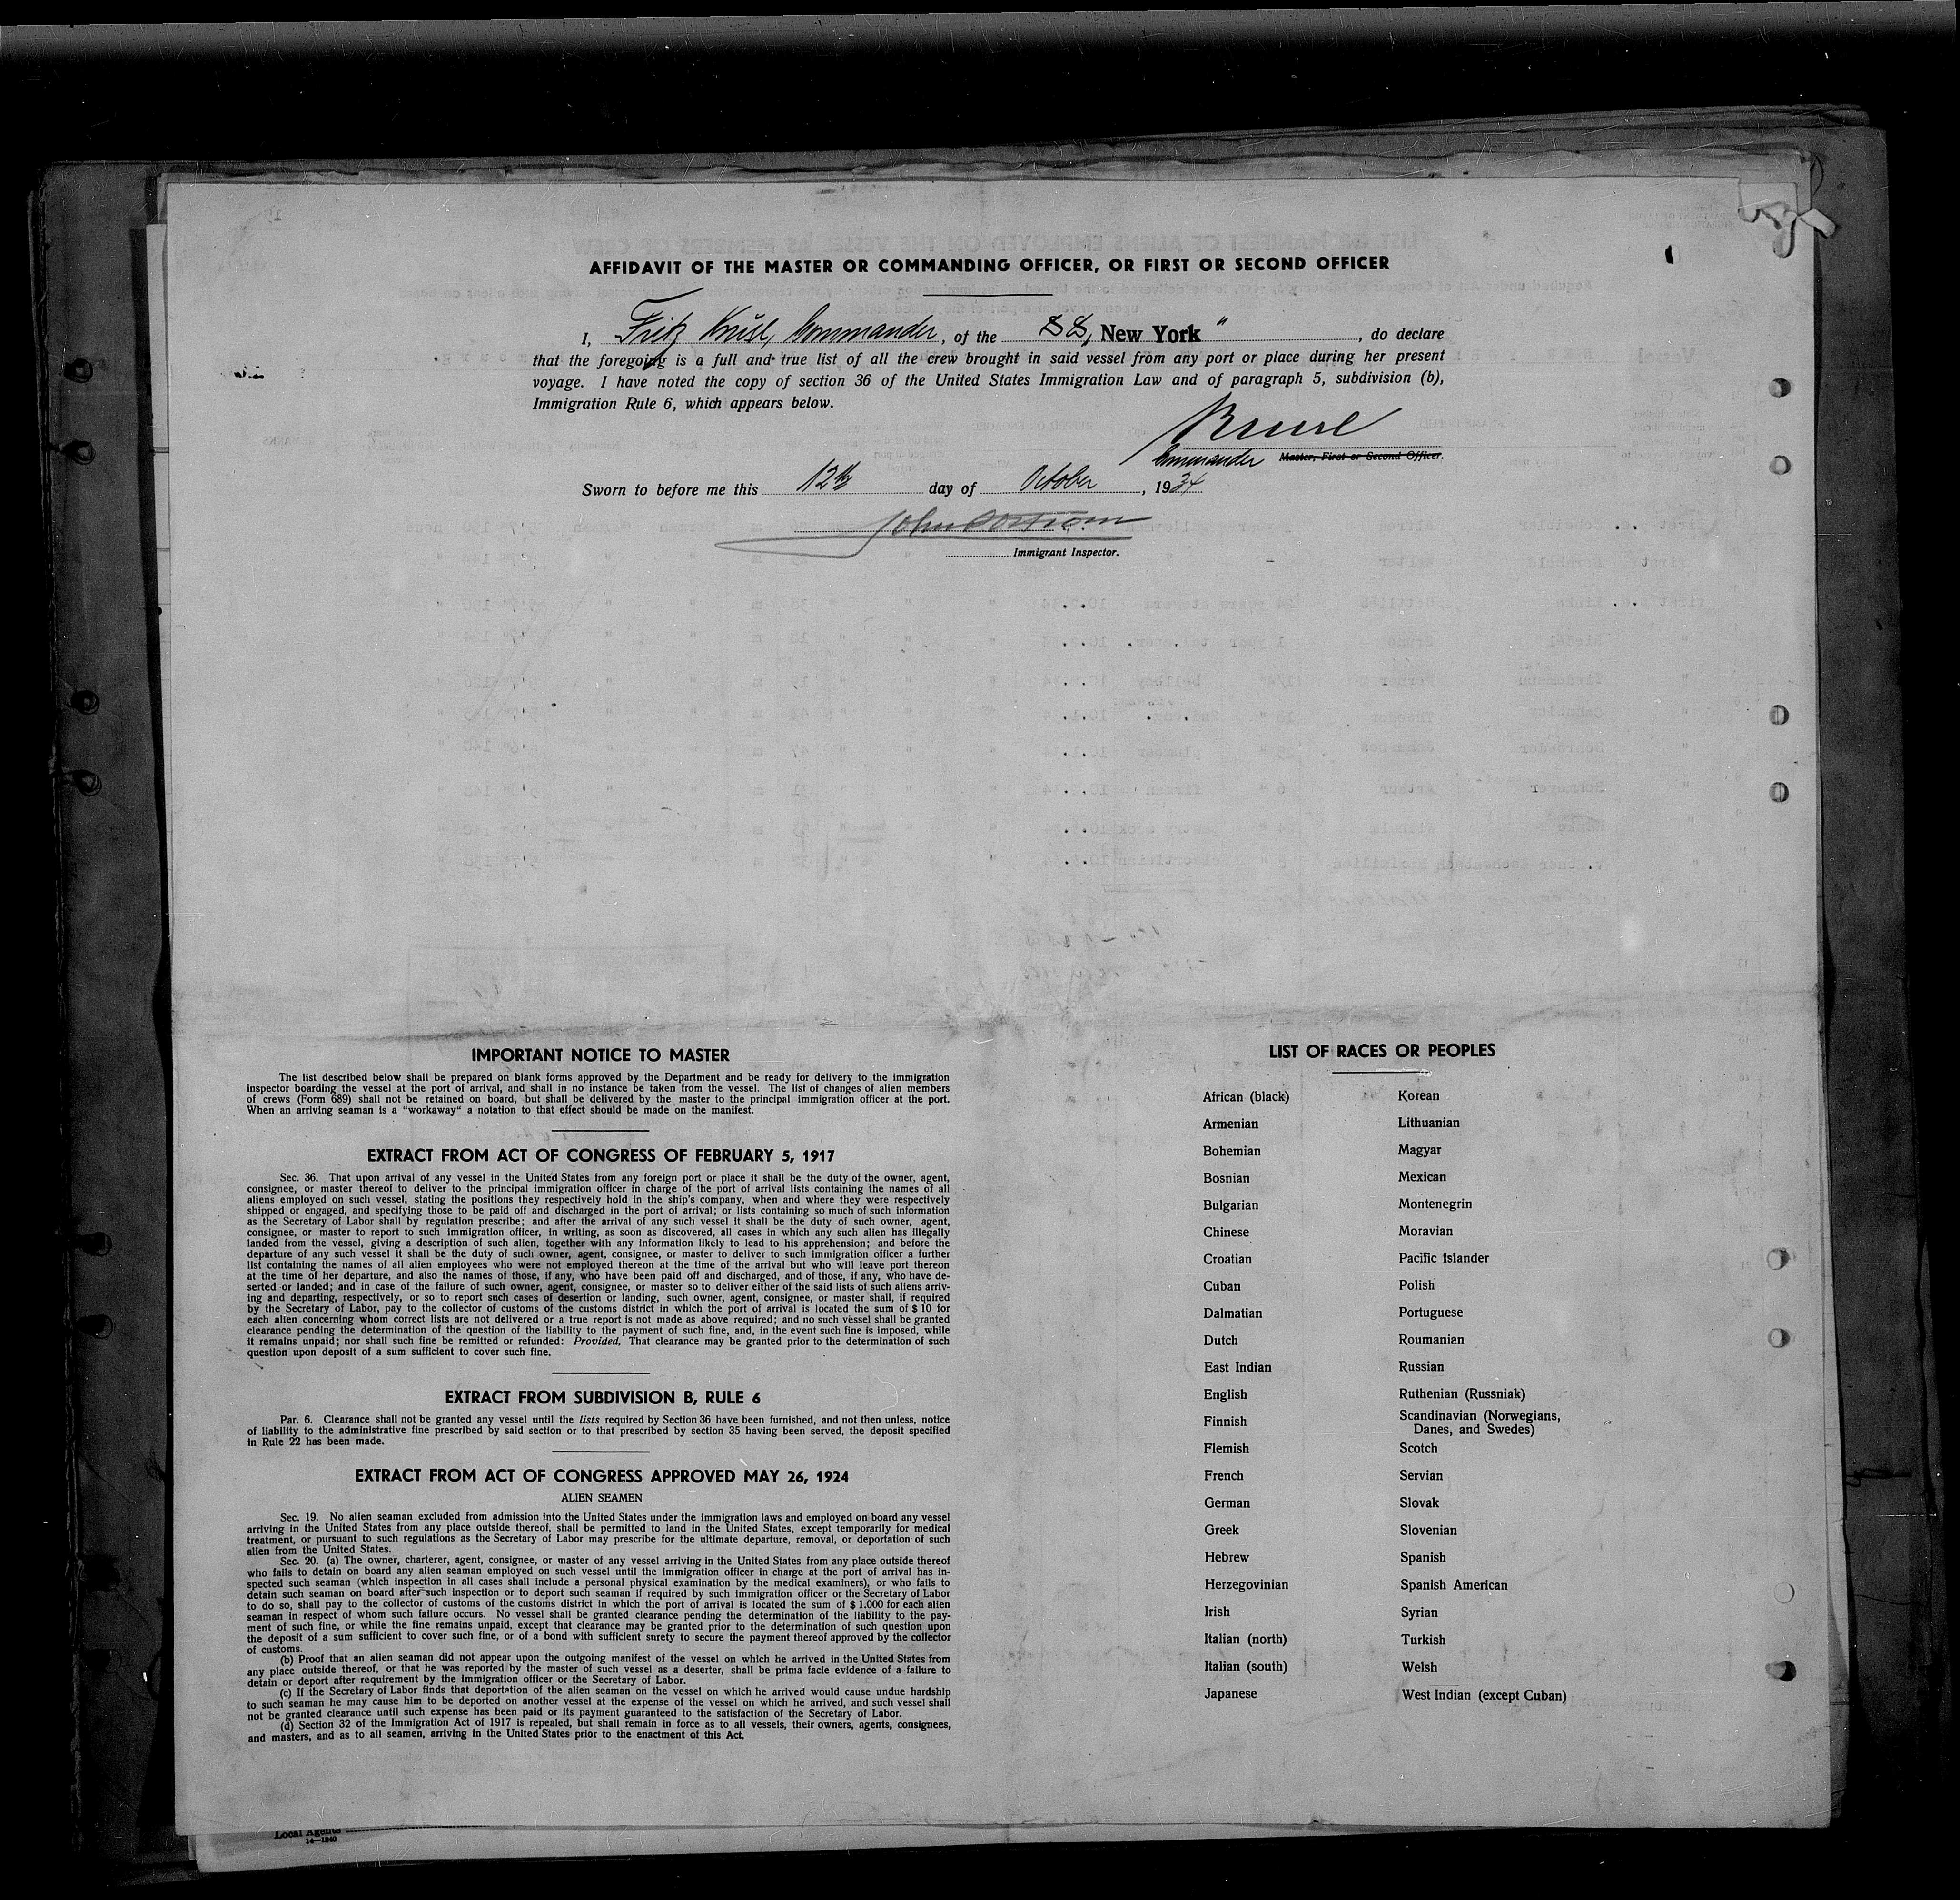 AFFIDAVIT OF THE MASTER OR COMMANDING OFFICER, OR FIRST OR SECOND OFFICER
I, Fritz Kruse, Commander, of the SS, New York", do declare
that the foregoing is a full and true list of all the crew brought in said vessel from any port or place during her present
voyage. I have noted the copy of section 36 of the United States Immigration Law and of paragraph 5, subdivision (b),
Immigration Rule 6, which appears below.
Kruse
Commander Master, First or Second Officer.
Sworn to before me this 12th day of October, 1934
Immigrant Inspector.
IMPORTANT NOTICE TO MASTER
The list described below shall be prepared on blank forms approved by the Department and be ready for delivery to the immigration
inspector boarding the vessel at the port of arrival, and shall in no instance be taken from the vessel. The list of changes of alien members
of crews (Form 689) shall not be retained on board, but shall be delivered by the master to the principal immigration officer at the port.
When an arriving seaman is a "workaway" a notation to that effect should be made on the manifest.
EXTRACT FROM ACT OF CONGRESS OF FEBRUARY 5, 1917
Sec. 36. That upon arrival of any vessel in the United States from any foreign port or place it shall be the duty of the owner, agent,
consignee, or master thereof to deliver to the principal immigration officer in charge of the port of arrival lists containing the names of all
aliens employed on such vessel, stating the positions they respectively hold in the ship's company, when and where they were respectively
shipped or engaged, and specifying those to be paid off and discharged in the port of arrival; or lists containing so much of such information
as the Secretary of Labor shall by regulation prescribe; and after the arrival of any such vessel it shall be the duty of such owner, agent,
consignee, or master to report to such immigration officer, in writing, as soon as discovered, all cases in which any such alien has illegally
landed from the vessel, giving a description of such alien, together with any information likely to lead to his apprehension; and before the
departure of any such vessel it shall be the duty of such owner, agent, consignee, or master to deliver to such immigration officer a further
list containing the names of all alien employees who were not employed thereon at the time of the arrival but who will leave port thereon
at the time of her departure, and also the names of those, if any, who have been paid off and discharged, and of those, if any, who have de-
serted or landed; and in case of the failure of such owner, agent, consignee, or master so to deliver either of the said lists of such aliens arriv-
ing and departing, respectively, or so to report such cases of desertion or landing, such owner, agent, consignee, or master shall, if required
by the Secretary of Labor, pay to the collector of customs of the customs district in which the port of arrival is located the sum of $ 10 for
each alien concerning whom correct lists are not delivered or a true report is not made as above required; and no such vessel shall be granted
clearance pending the determination of the question of the liability to the payment of such fine, and, in the event such fine is imposed, while
it remains unpaid; nor shall such fine be remitted or refunded: Provided, That clearance may be granted prior to the determination of such
question upon deposit of a sum sufficient to cover such fine.
EXTRACT FROM SUBDIVISION B, RULE 6
Par. 6. Clearance shall not be granted any vessel until the lists required by Section 36 have been furnished, and not then unless, notice
of liability to the administrative fine prescribed by said section or to that prescribed by section 35 having been served, the deposit specified
in Rule 22 has been made.
EXTRACT FROM ACT OF CONGRESS APPROVED MAY 26, 1924
ALIEN SEAMEN
Sec. 19. No alien seaman excluded from admission into the United States under the immigration laws and employed on board any vessel
arriving in the United States from any place outside thereof, shall be permitted to land in the United States, except temporarily for medical
treatment, or pursuant to such regulations as the Secretary of Labor may prescribe for the ultimate departure, removal, or deportation of such
alien from the United States.
Sec. 20. (a) The owner, charterer, agent, consignee, or master of any vessel arriving in the United States from any place outside thereof
who fails to detain on board any alien seaman employed on such vessel until the immigration officer in charge at the port of arrival has in-
spected such seaman (which inspection in all cases shall include a personal physical examination by the medical examiners), or who fails to
detain such seaman on board after such inspection or to deport such seaman if required by such immigration officer or the Secretary of Labor
to do so, shall pay to the collector of customs of the customs district in which the port of arrival is located the sum of $ 1.000 for each alien
seaman in respect of whom such failure occurs. No vessel shall be granted clearance pending the determination of the liability to the pay-
ment of such fine, or while the fine remains unpaid, except that clearance may be granted prior to the determination of such question upon
the deposit of a sum sufficient to cover such fine, or of a bond with sufficient surety to secure the payment thereof approved by the collector
of customs.
(b) Proof that an alien seaman did not appear upon the outgoing manifest of the vessel on which he arrived in the United States from
any place outside thereof, or that he was reported by the master of such vessel as a deserter, shall be prima facie evidence of a failure to
detain or deport after requirement by the immigration officer or the Secretary of Labor.
(c) If the Secretary of Labor finds that deportation of the alien seaman on the vessel on which he arrived would cause undue hardship
to such seaman he may cause him to be deported on another vessel at the expense of the vessel on which he arrived, and such vessel shall
not be granted clearance until such expense has been paid or its payment guaranteed to the satisfaction of the Secretary of Labor.
(d) Section 32 of the Immigration Act of 1917 is repealed, but shall remain in force as to all vessels, their owners, agents, consignees,
and masters, and as to all seamen, arriving in the United States prior to the enactment of this Act.
LIST OF RACES OR PEOPLES
African (black)
Armenian
Bohemian
Bosnian
Bulgarian
Chinese
Croatian
Cuban
Dalmatian
Dutch
East Indian
English
Finnish
Flemish
French
German
Greek
Hebrew
Herzegovinian
Irish
Italian (north)
Italian (south)
Japanese
Korean
Lithuanian
Magyar
Mexican
Montenegrin
Moravian
Pacific Islander
Polish
Portuguese
Roumanian
Russian
Ruthenian (Russniak)
Scandinavian (Norwegians,
Danes, and Swedes)
Scotch
Servian
Slovak
Slovenian
Spanish
Spanish American
Syrian
Turkish
Welsh
West Indian (except Cuban)
Local Agents
14—1240